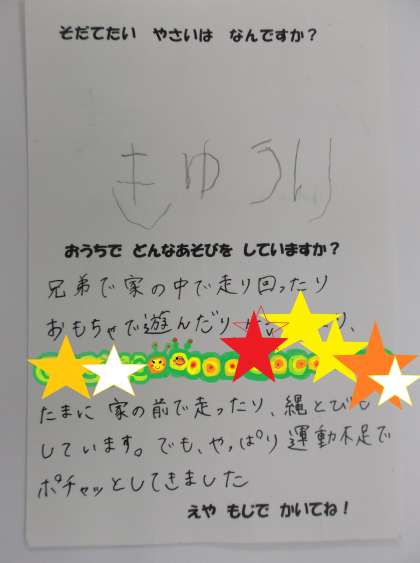 そだてたい やさいは なんですか？
きゆうり
おうちで どんなあそびを していますか？
兄弟で家の中で走り回ったり
おもちゃで遊んだり
たまに 家の前で走ったり、縄とびも
しています。でも、やっぱり運動不足で
ポチャッとしてきました
えや もじで かいてね！